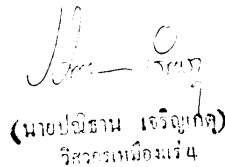 (นายปณิธาน เจริญเกตุ)
วิศวกรเหมืองแร่ 4